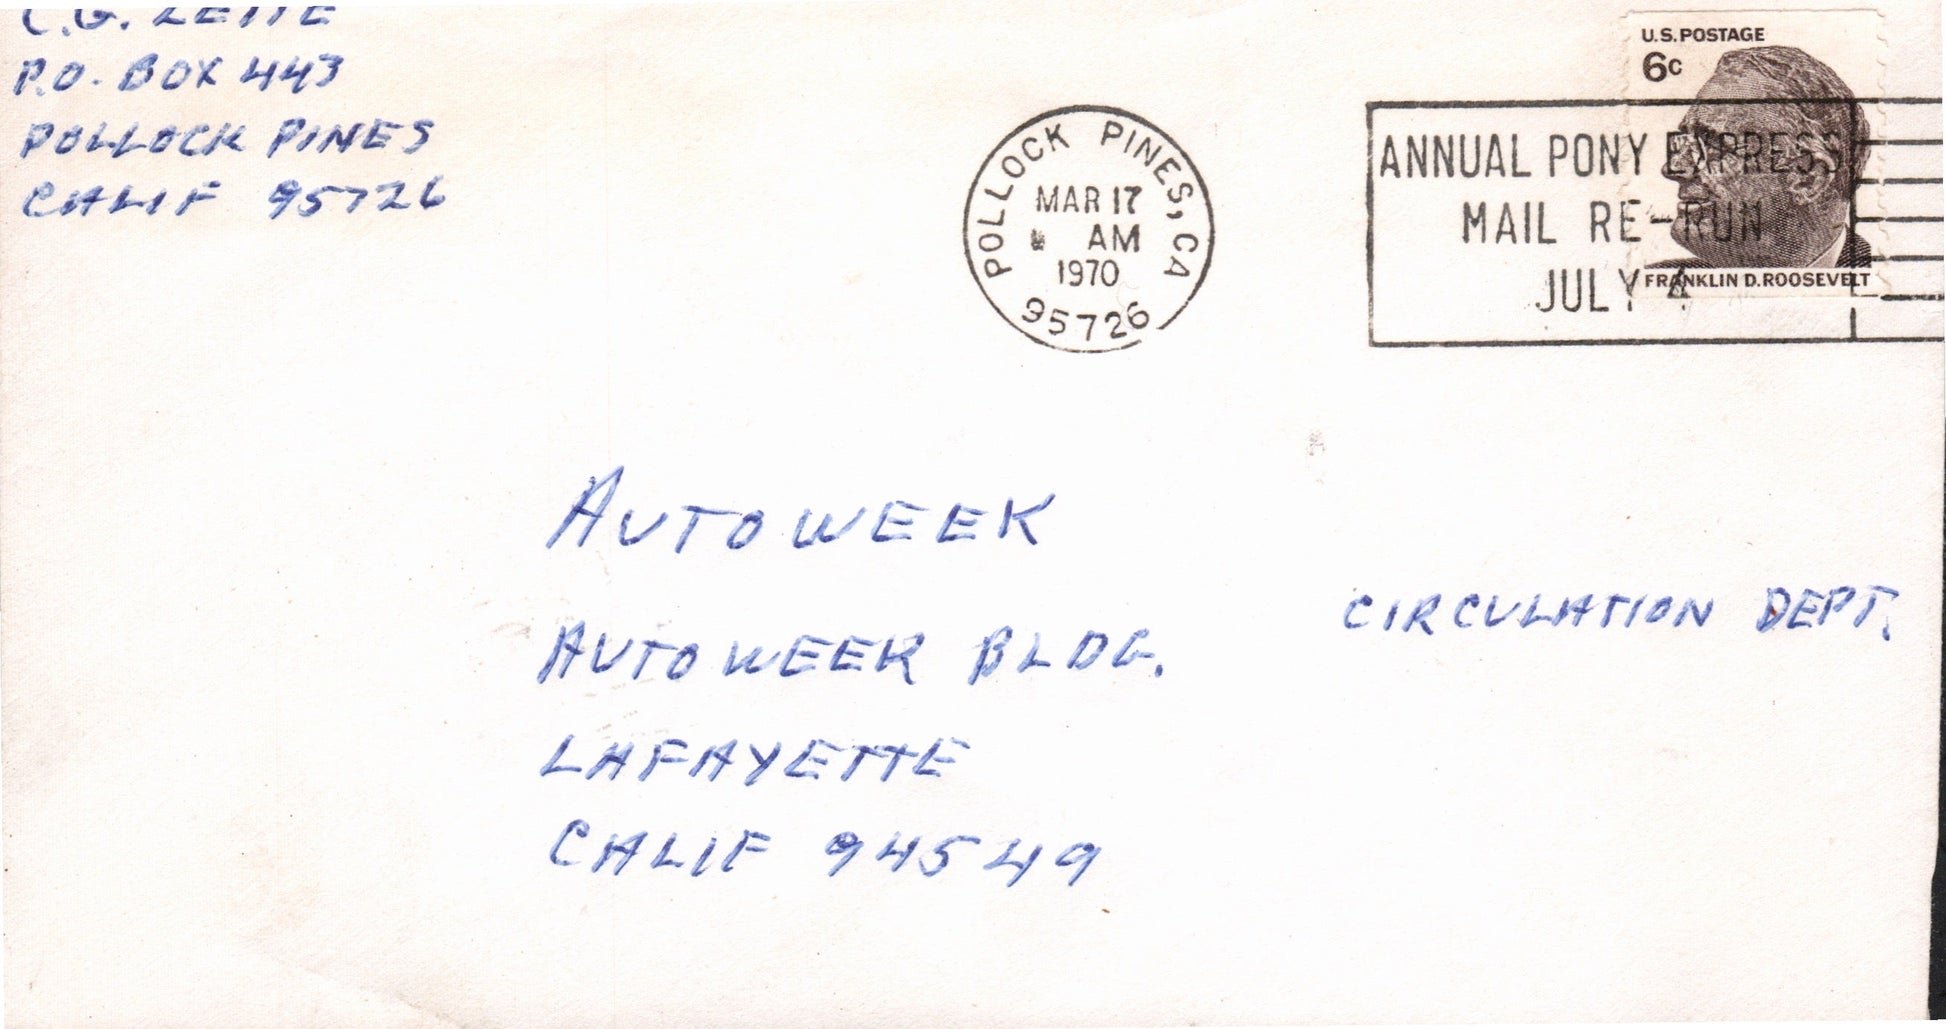 P.O. BOX 443
POLLOCK PINES
CALIF 95726
POLLOCK PINES, CA
MAR 17
AM
1970
95726
U.S. POSTAGE
6c
ANNUAL PONY EXPRESS
MAIL RE-RUN
JULY 4
FRANKLIN D. ROOSEVELT
AUTOWEEK
CIRCULATION DEPT.
AUTOWEEK BLDG.
LAFAYETTE
CALIF 94549